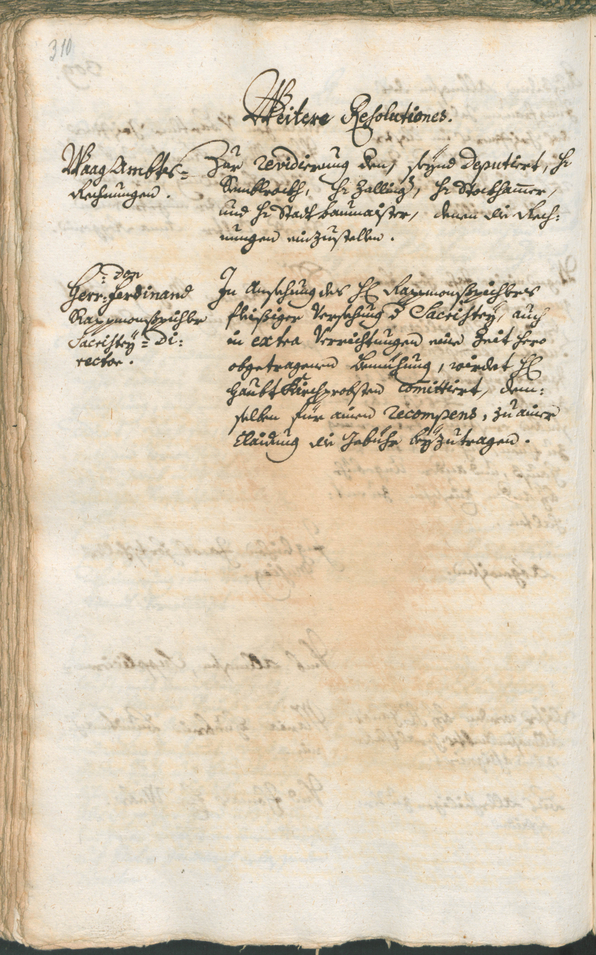 310
Weitere Resolutiones.
Waag Ambts=
Rechnungen.
Zur revidierung den, seynd deputirt, H:
H: Zallinger, H: Stockhamer,
und H: Stadt baumaister, denen die Rech:
nungen einzustellen.
Herr: Ferdinand
Sacristey= Di:
rector.
In Ansehung des H:
fleißiger Versehung d Sacristey, auch
in extra Verrichtungen eine Zeit hero
obgetragenen Bemühung, würdet H:
haubt Kirchprobsten committirt, dem:
selben für ainen recompens, zu ainer
Claidung die Gebühr beyzutragen.